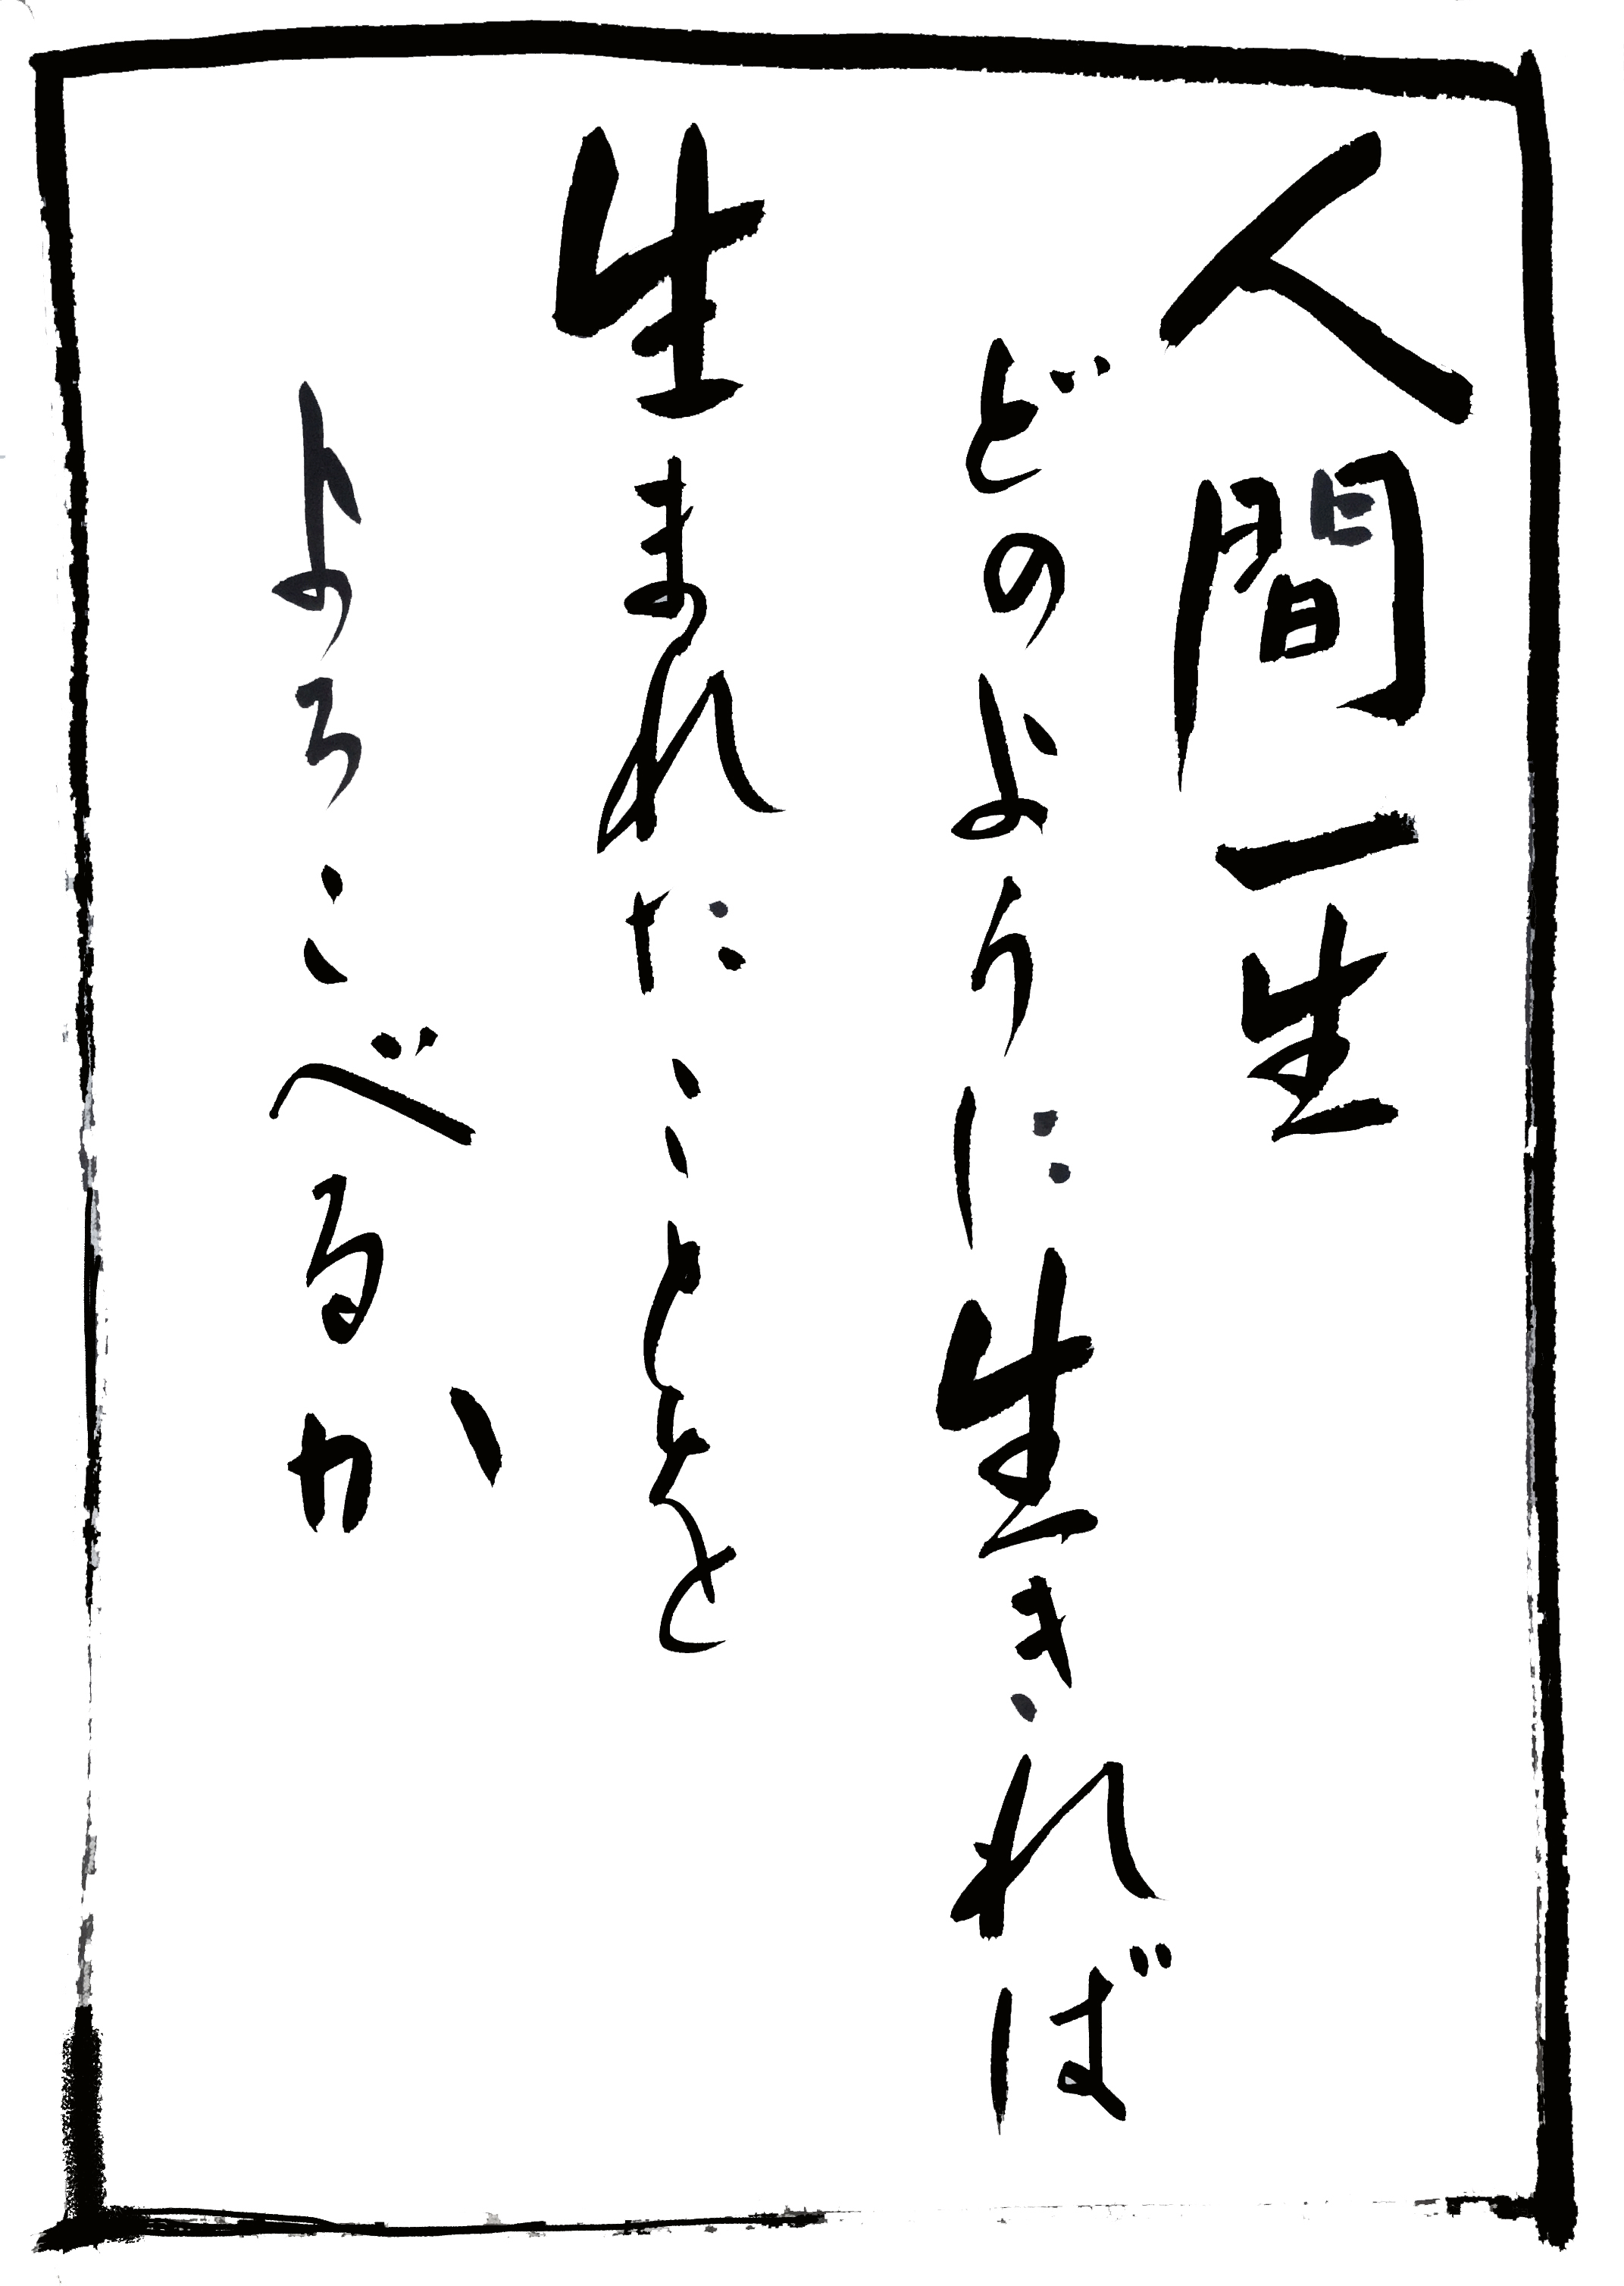 人間一生
どのように生きれば
生まれたことを
よろこべるか